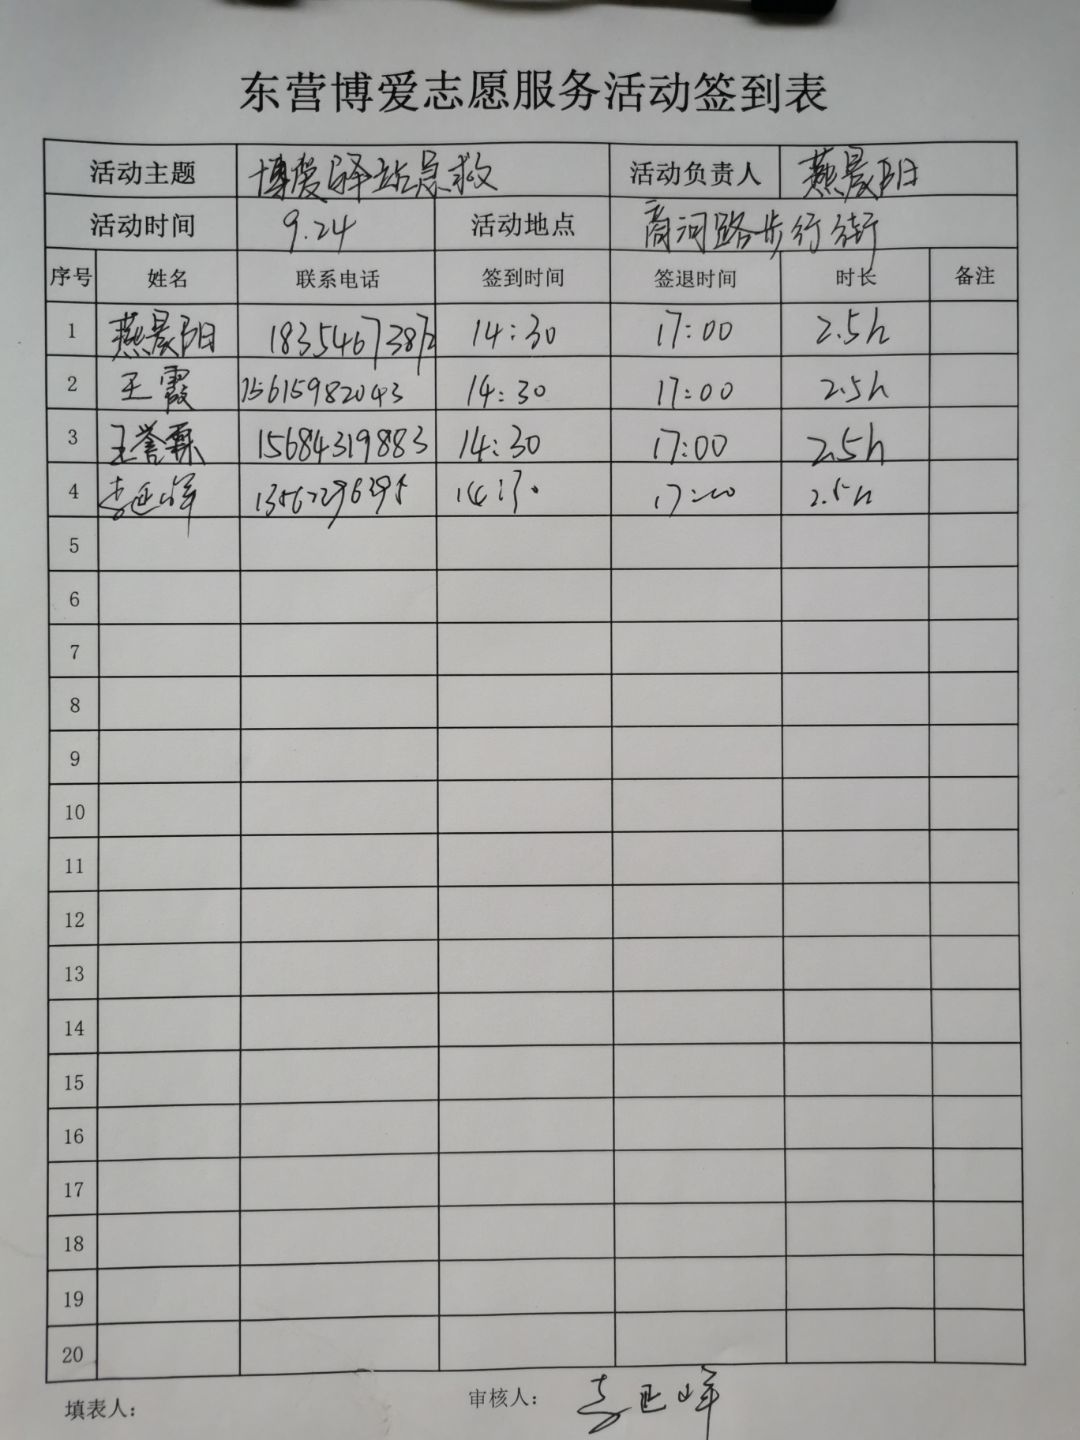 东营博爱志愿服务活动签到表
活动主题 博爱驿站急救 活动负责人 燕晨阳
活动时间 9.24 活动地点 商河路步行街
序号 姓名 联系电话 签到时间 签退时间 时长 备注
1 燕晨阳 14:30 17:00 2.5h
2 王霞 15615982043 14:30 17:00 2.5h
3 王誉霖 15684319883 14:30 17:00 2.5h
4 李延峰 14:30 17:00 2.5h
5
6
7
8
9
10
11
12
13
14
15
16
17
18
19
20
填表人： 审核人： 李延峰